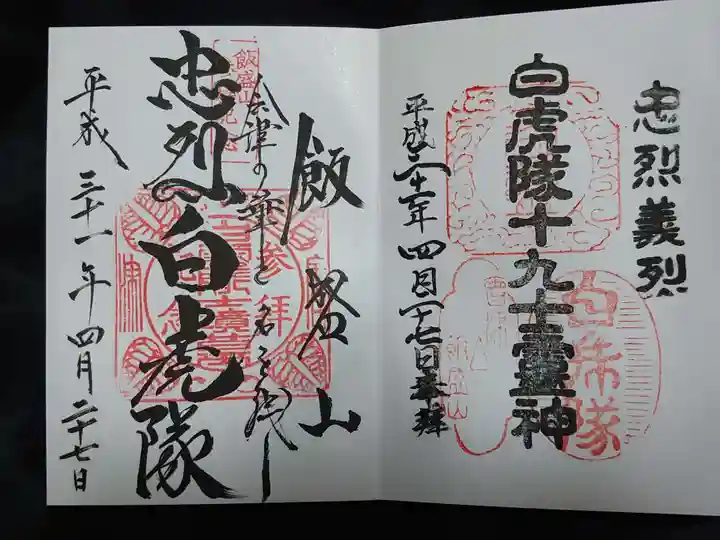 忠烈義烈
白虎隊十九士霊神
平成三十一年四月廿七日奉拝
白乕隊
飯盛山
飯盛山
会津の華と名を残し
忠烈の白虎隊
平成三十一年四月二十七日
参拝